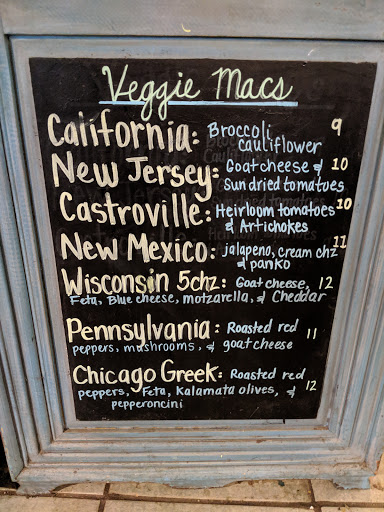 Veggie Macs
California: Broccoli 9
cauliflower
New Jersey: Goat cheese & 10
Sun dried tomatoes
Castroville: Heirloom tomatoes 10
& Artichokes
New Mexico: jalapeno, cream chz 11
& panko
Wisconsin 5chz: Goat cheese, 12
Feta, Blue cheese, motzarella, & Cheddar
Pennsylvania: Roasted red 11
peppers, mushrooms, & goat cheese
Chicago Greek: Roasted red
peppers, Feta, Kalamata olives, & 12
pepperoncini